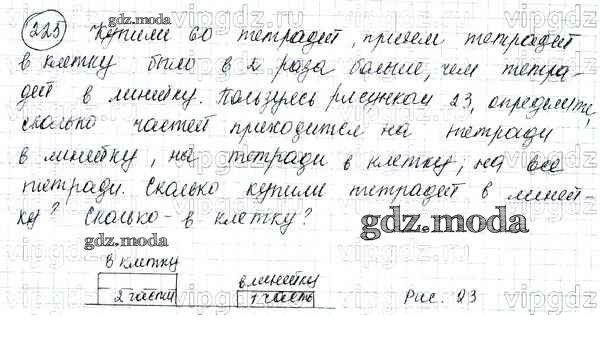 225 Купили 60 тетрадей, причем тетрадей
в клетку было в 2 раза больше, чем тетра-
дей в линейку. Пользуясь рисунком 23, определите,
сколько частей приходится на тетради
в линейку, на тетради в клетку, на все
тетради. Сколько купили тетрадей в линей-
ку? Сколько - в клетку?
gdz.moda
gdz.moda
gdz.moda
в клетку
2 части
в линейку
1 часть
Рис. 23